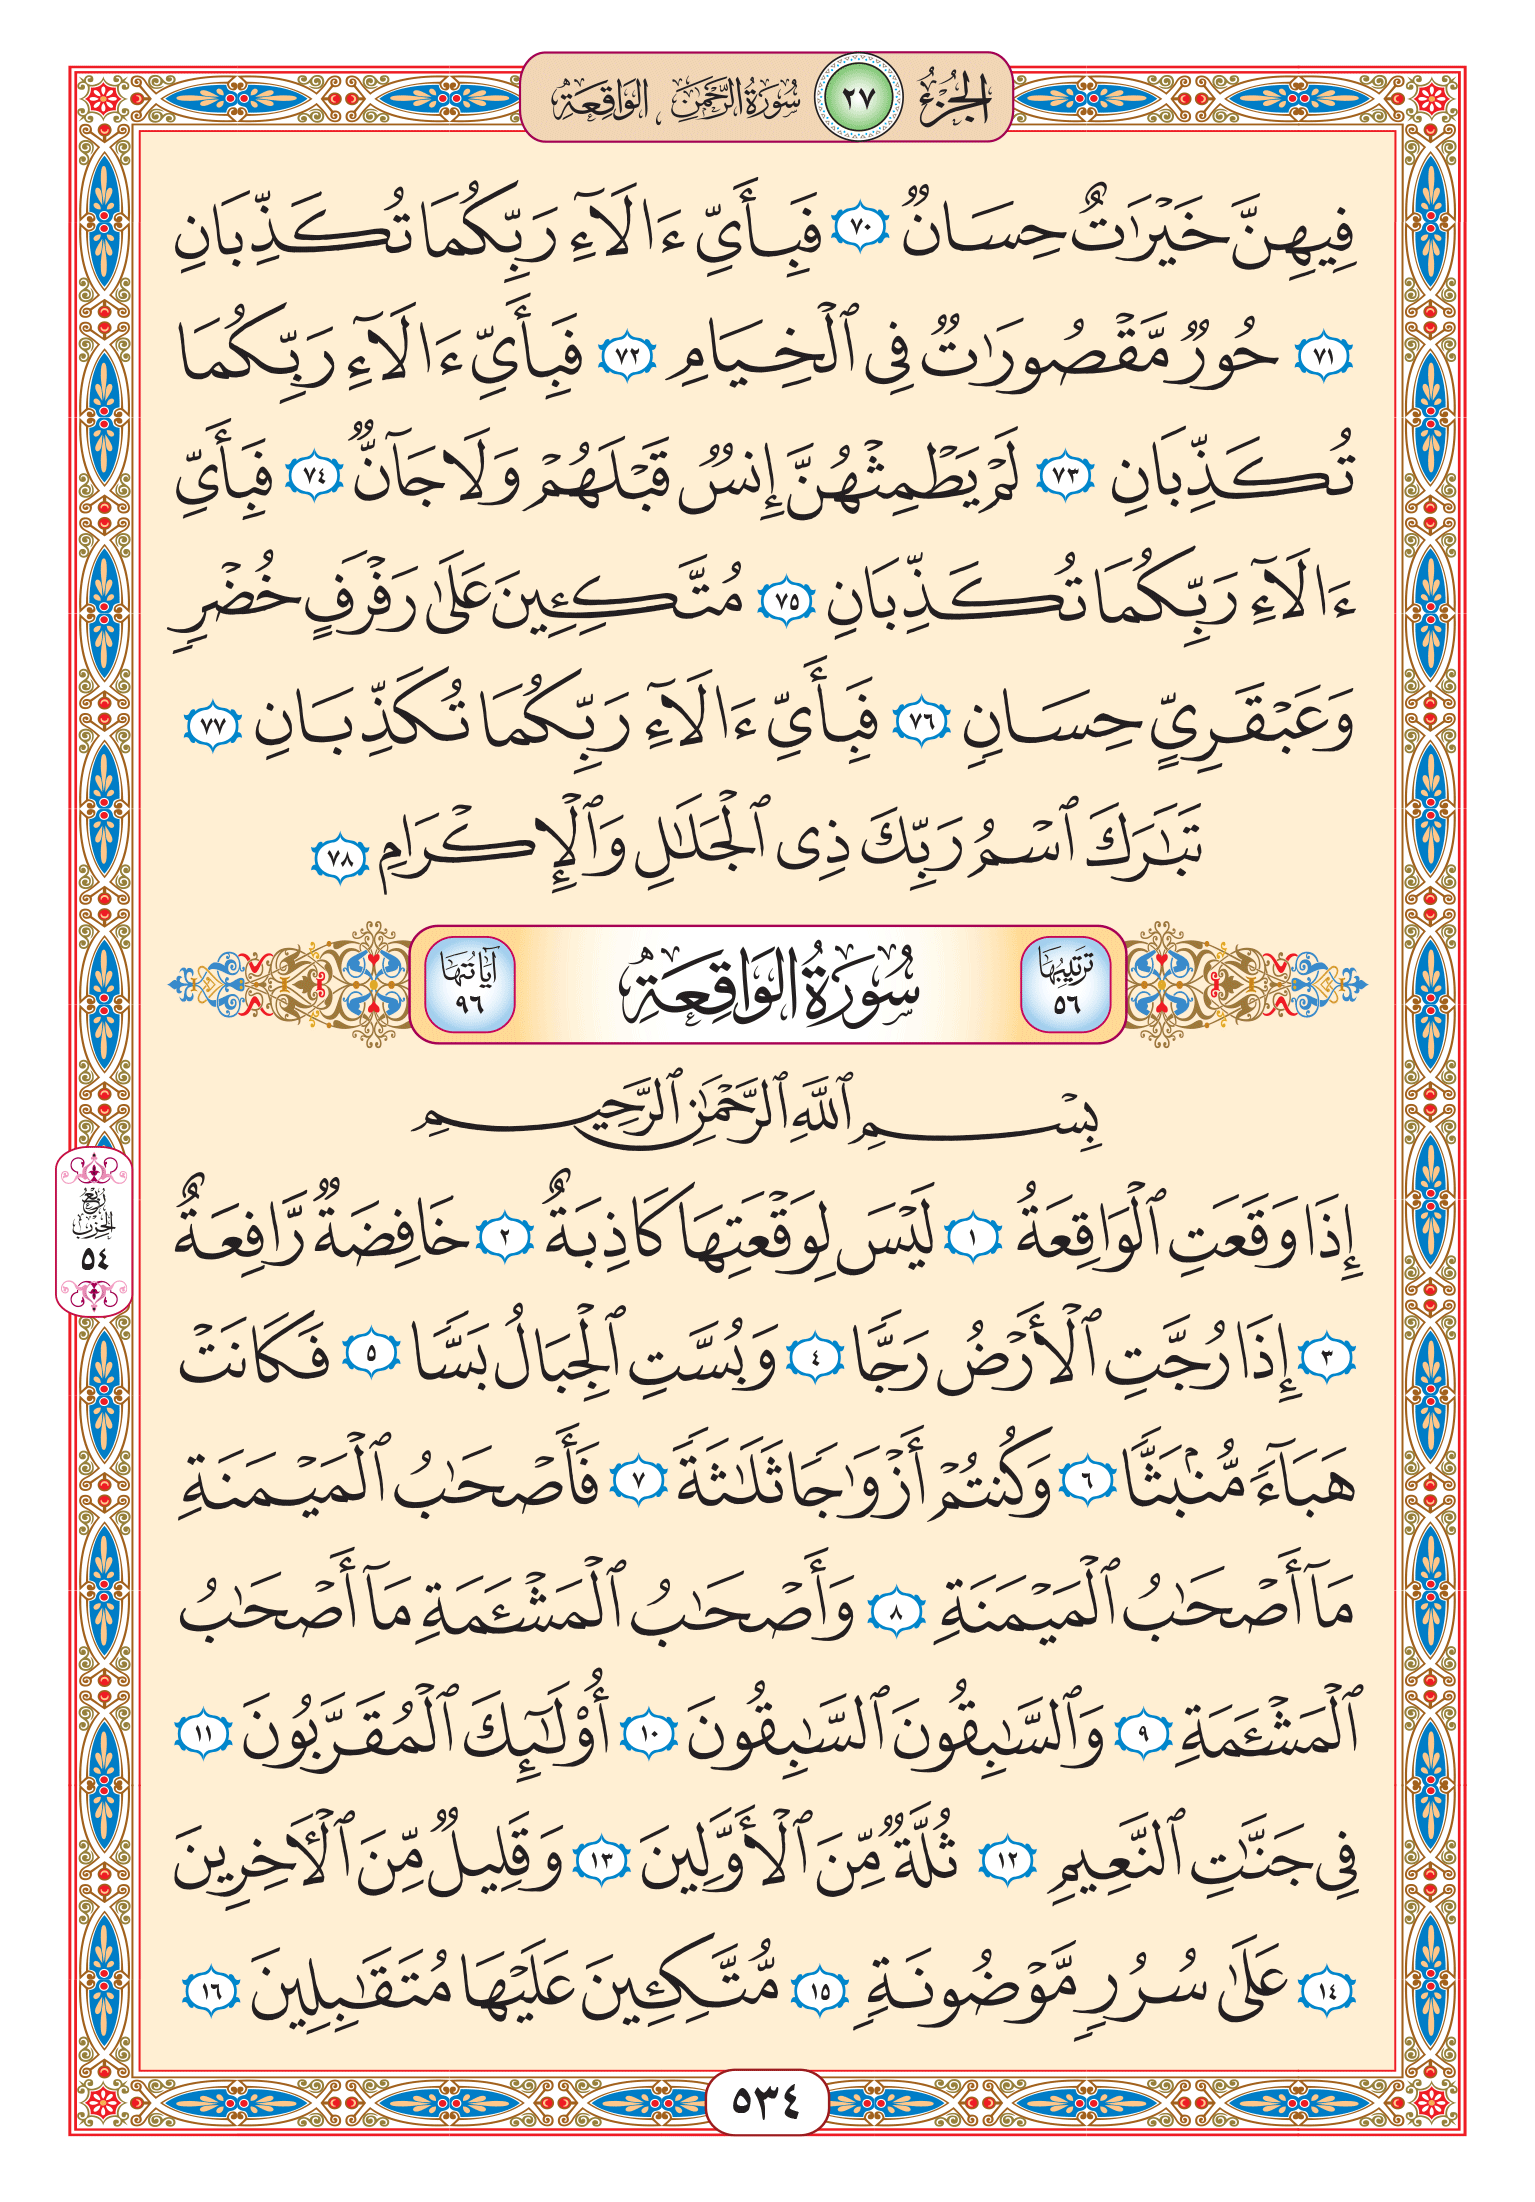 الجزء ٢٧ سورة الرحمن الواقعة
فِيهِنَّ خَيْرَٰتٌ حِسَانٌ ٧٠ فَبِأَيِّ ءَالَآءِ رَبِّكُمَا تُكَذِّبَانِ
٧١ حُورٌ مَّقْصُورَٰتٌ فِى ٱلْخِيَامِ ٧٢ فَبِأَيِّ ءَالَآءِ رَبِّكُمَا
تُكَذِّبَانِ ٧٣ لَمْ يَطْمِثْهُنَّ إِنسٌ قَبْلَهُمْ وَلَا جَآنٌّ ٧٤ فَبِأَيِّ
ءَالَآءِ رَبِّكُمَا تُكَذِّبَانِ ٧٥ مُتَّكِـِٔينَ عَلَىٰ رَفْرَفٍ خُضْرٍ
وَعَبْقَرِيٍّ حِسَانٍ ٧٦ فَبِأَيِّ ءَالَآءِ رَبِّكُمَا تُكَذِّبَانِ ٧٧
تَبَٰرَكَ ٱسْمُ رَبِّكَ ذِى ٱلْجَلَٰلِ وَٱلْإِكْرَامِ ٧٨
ترتيبها ٥٦ سُورَةُ الوَاقِعَةِ آياتها ٩٦
بِسْمِ ٱللَّهِ ٱلرَّحْمَٰنِ ٱلرَّحِيمِ
إِذَا وَقَعَتِ ٱلْوَاقِعَةُ ١ لَيْسَ لِوَقْعَتِهَا كَاذِبَةٌ ٢ خَافِضَةٌ رَّافِعَةٌ
٣ إِذَا رُجَّتِ ٱلْأَرْضُ رَجًّا ٤ وَبُسَّتِ ٱلْجِبَالُ بَسًّا ٥ فَكَانَتْ
هَبَآءً مُّنۢبَثًّا ٦ وَكُنتُمْ أَزْوَٰجًا ثَلَٰثَةً ٧ فَأَصْحَٰبُ ٱلْمَيْمَنَةِ
مَآ أَصْحَٰبُ ٱلْمَيْمَنَةِ ٨ وَأَصْحَٰبُ ٱلْمَشْـَٔمَةِ مَآ أَصْحَٰبُ
ٱلْمَشْـَٔمَةِ ٩ وَٱلسَّٰبِقُونَ ٱلسَّٰبِقُونَ ١٠ أُو۟لَٰٓئِكَ ٱلْمُقَرَّبُونَ ١١
فِى جَنَّٰتِ ٱلنَّعِيمِ ١٢ ثُلَّةٌ مِّنَ ٱلْأَوَّلِينَ ١٣ وَقَلِيلٌ مِّنَ ٱلْـَٔاخِرِينَ
١٤ عَلَىٰ سُرُرٍ مَّوْضُونَةٍ ١٥ مُّتَّكِـِٔينَ عَلَيْهَا مُتَقَٰبِلِينَ ١٦
ربع
الحزب
٥٤
٥٣٤